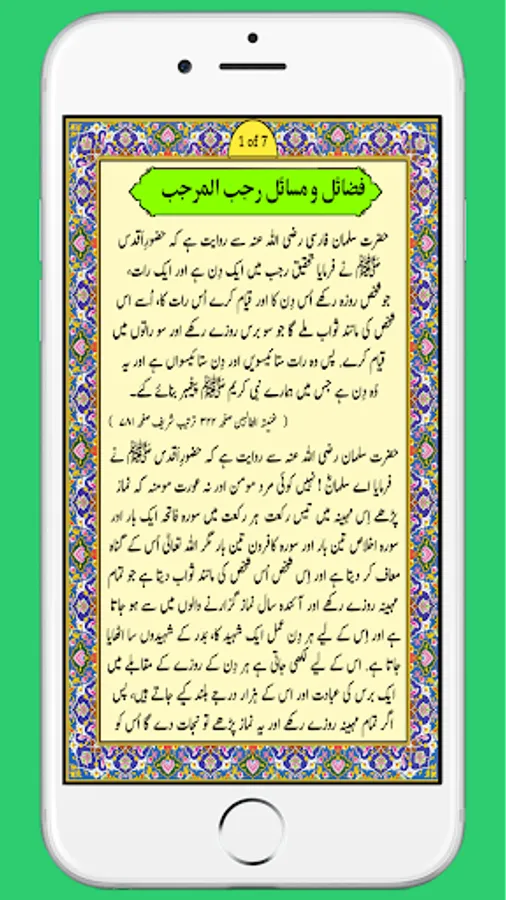 1 of 7
فضائل و مسائل رجب المرجب
حضرت سلمان فارسی رضی اللہ عنہ سے روایت ہے کہ حضورِاَقدس
ﷺ نے فرمایا تحقیق رجب میں ایک دِن ہے اور ایک رات،
جو شخص روزہ رکھے اُس دِن کا اور قیام کرے اُس رات کا، اُسے اس
شخص کی مانند ثواب ملے گا جو سو برس روزے رکھے اور سو راتوں میں
قیام کرے. پس وہ رات ستائیسویں اور دِن ستائیسواں ہے اور یہ
وُہ دِن ہے جس میں ہمارے نبی کریم ﷺ پیغمبر بنائے گئے۔
( غنیۃ الطالبین صفحہ ۳۲۲ ترتیب شریف صفحہ ۷۸۱ )
حضرت سلمان رضی اللہ عنہ سے روایت ہے کہ حضورِاَقدس ﷺ نے
فرمایا اے سلمانؓ ! نہیں کوئی مرد مومن اور نہ عورت مومنہ کہ نماز
پڑھے اِس مہینہ میں تیس رکعت ہر رکعت میں سورہ فاتحہ ایک بار اور
سورہ اخلاص تین بار اور سورہ کافرون تین بار مگر اللہ تعالٰی اُس کے گناہ
معاف کر دیتا ہے اور اِس شخص اُس شخص کی مانند ثواب دیتا ہے جو تمام
مہینہ روزے رکھے اور آئندہ سال نماز گزارنے والوں میں سے ہو جاتا
ہے اور اِس کے لیے ہر دِن عمل ایک شہید کا، بدر کے شہیدوں سا اٹھایا
جاتا ہے. اس کے لیے لکھی جاتی ہے ہر دِن کے روزے کے مقابلے میں
ایک برس کی عبادت اور اس کے ہزار درجے بلند کیے جاتے ہیں، پس
اگر تمام مہینہ روزے رکھے اور یہ نماز پڑھے تو نجات دے گا اُس کو